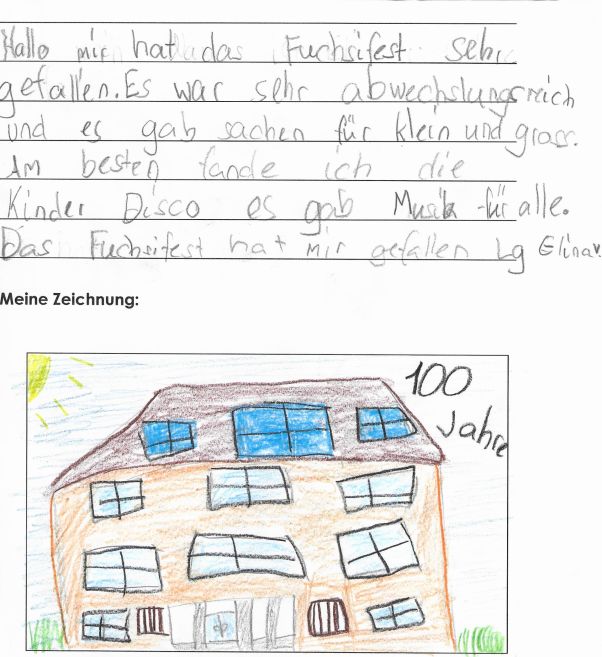 Hallo mir hat das Fuchsifest sehr
gefallen. Es war sehr abwechslungsreich
und es gab sachen für klein und gross.
Am besten fande ich die
Kinder Disco es gab Musik für alle.
Das Fuchsifest hat mir gefallen Lg Elina
Meine Zeichnung:
100
Jahre